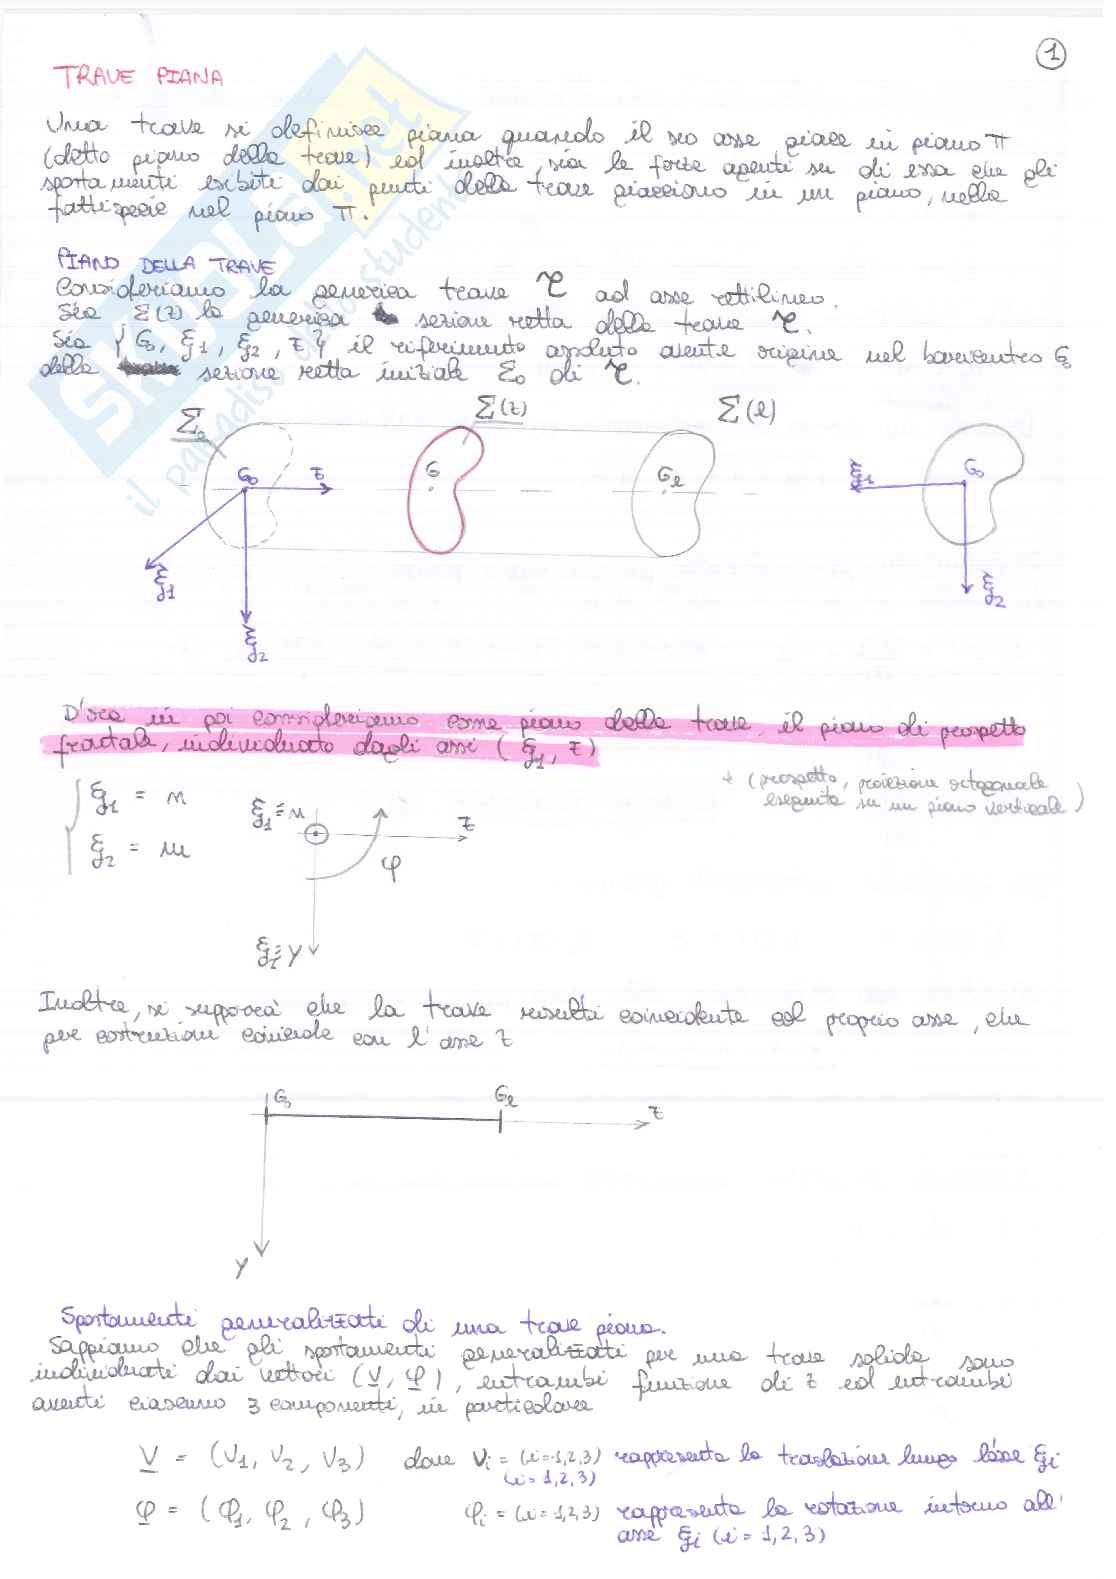 1
TRAVE PIANA
Una trave si definisce piana quando il suo asse giace in piano π
(detto piano della trave) ed inoltre, sia le forze agenti su di essa che gli
spostamenti esibiti dai punti della trave giacciono in un piano, nella
fattispecie nel piano π.
PIANO DELLA TRAVE
Consideriamo la generica trave τ ad asse rettilineo.
Sia Σ(z) la generica sezione retta della trave τ.
Sia {G₀, ξ1, ξ2, z} il riferimento assoluto avente origine nel baricentro G₀
della sezione retta iniziale Σ₀ di τ.
Σ₀ Σ(z) Σ(l)
G₀ z G Gℓ ξ1 G₀
ξ1 ξ2
ξ2
D'ora in poi consideriamo come piano della trave, il piano di prospetto
frontale, individuato dagli assi (ξ1, z)
* (prospetto, proiezione ortogonale
eseguita su un piano verticale)
ξ1 = n
ξ2 = m
ξ1 ≡ n z
φ
ξ2 ≡ y
Inoltre, si supporrà che la trave risulti coincidente col proprio asse, che
per costruzione coincide con l'asse z
G₀ Gℓ z
y
Spostamenti generalizzati di una trave piana.
Sappiamo che gli spostamenti generalizzati per una trave solida sono
individuati dai vettori (v, φ), entrambi funzione di z ed entrambi
aventi ciascuno 3 componenti, in particolare
v = (v1, v2, v3) dove vi = (i=1,2,3) rappresenta la traslazione lungo l'asse ξi
(i=1,2,3)
φ = (φ1, φ2, φ3) φi = (i=1,2,3) rappresenta la rotazione intorno all'
asse ξi (i=1,2,3)
SKUOLA.net
il paradiso dello studente